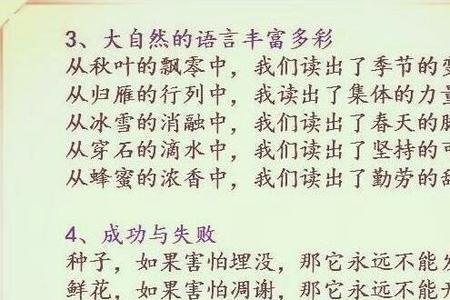 3、大自然的语言丰富多彩
从秋叶的飘零中，我们读出了季节的变
从归雁的行列中，我读出了集体的力量
从冰雪的消融中，我们读出了春天的脚
从穿石的滴水中，我们读出了坚持的可
从蜂蜜的浓香中，我们读出了勤劳的甜
4、成功与失败
种子，如果害怕埋没，那它永远不能发
鲜花，如果害怕凋谢，那它永远不能开